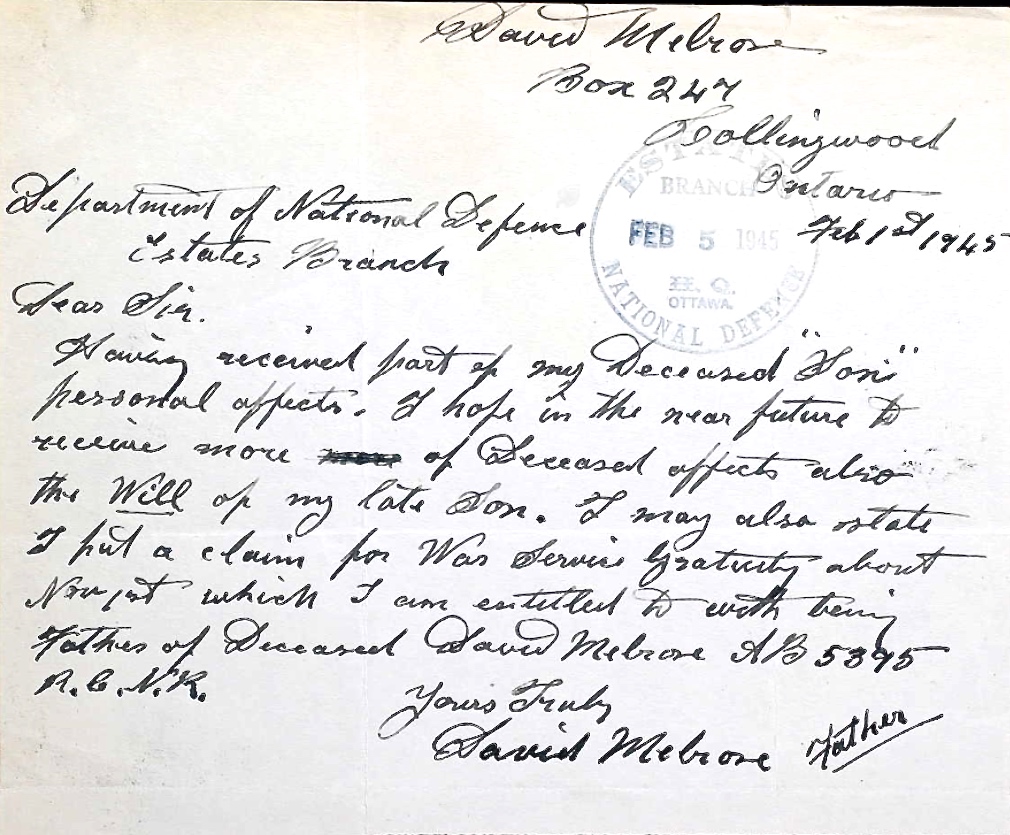 David Melrose
Box 247
Collingwood
Ontario
Feb 1st 1945
ESTATES
BRANCH
FEB 5 1945
H. Q.
OTTAWA.
NATIONAL DEFENCE
Department of National Defence
Estates Branch
Dear Sir.
Having received part of my Deceased "Son"
personal affects. I hope in the near future to
receive more of Deceased affects also
the Will of my late Son. I may also state
I put a claim for War Service Gratuity about
Nov 1st which I am entitled to with being
Father of Deceased David Melrose AB 5395
R.C.N.R.
Yours Truly
David Melrose Father